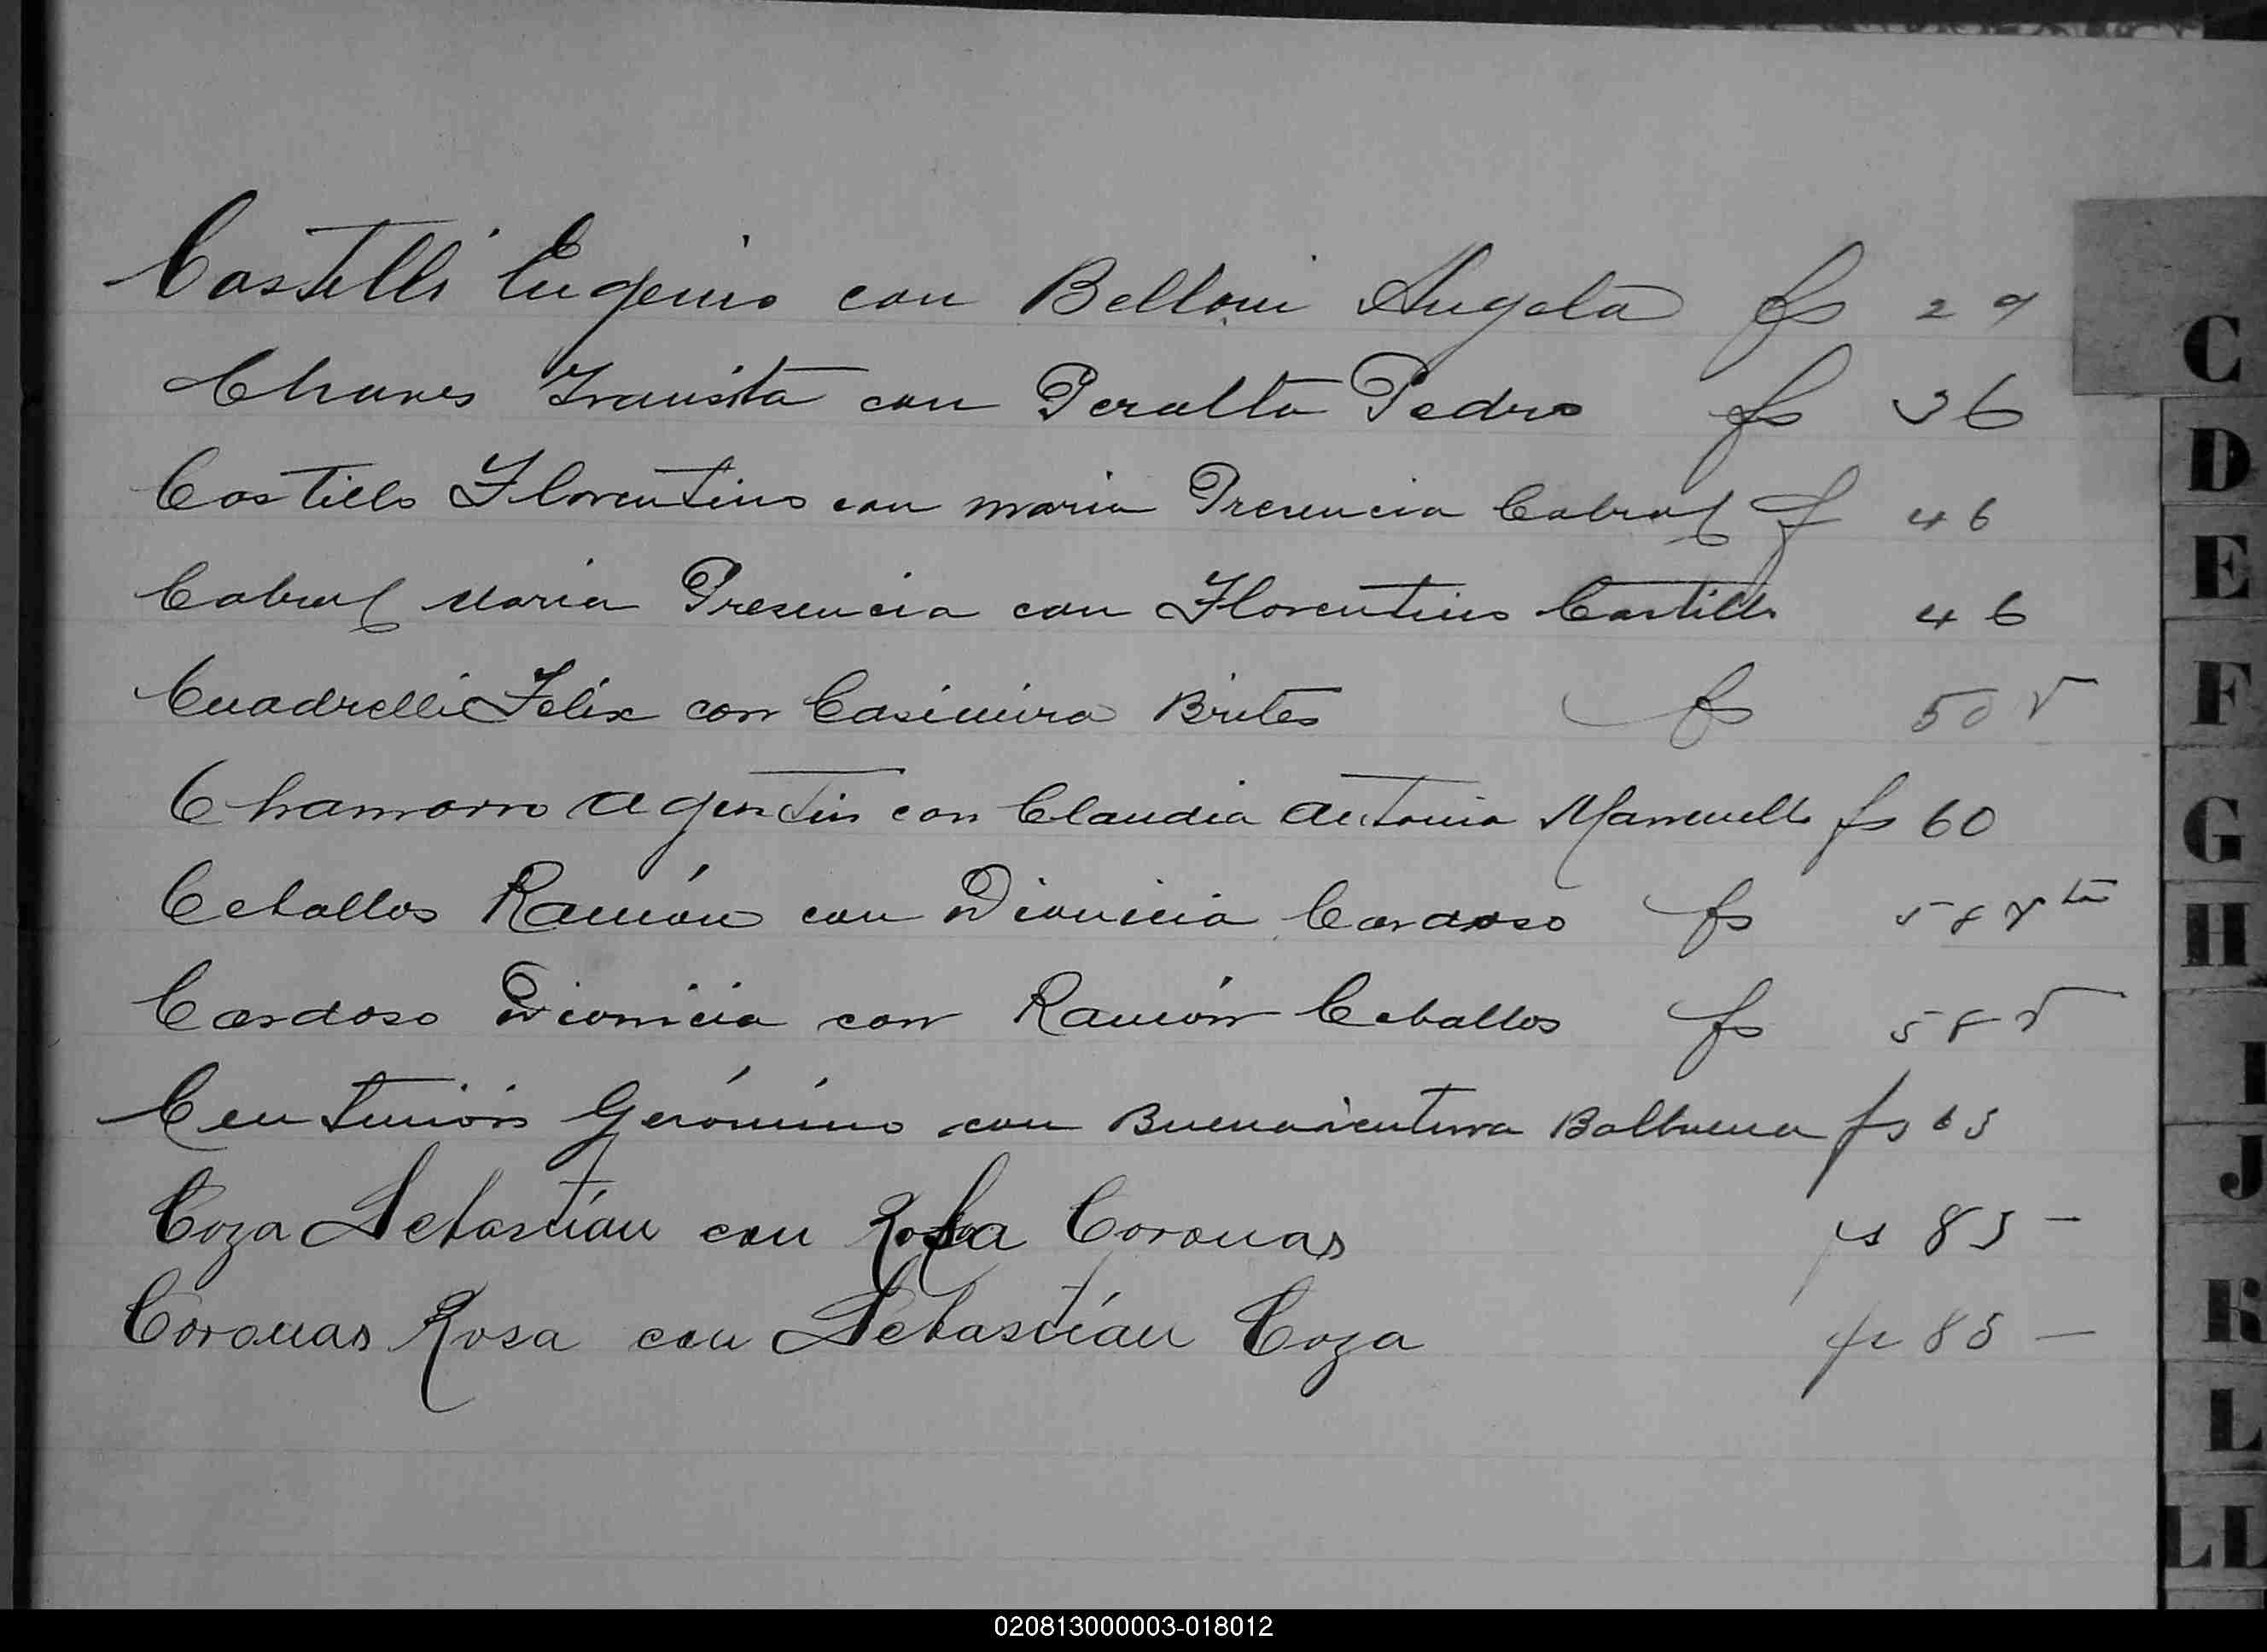 Castelli Eugenio con Belloni Angela fs 29
Chaves Transita con Peralta Pedro fs 36
Castillo Florentino con maria Presencia Cabral f 46
Cabral Maria Presencia con Florentino Castillo 46
Cuadrelli Felix con Casimira Brites fs 50 v
Chamorro Agustin con Claudia Antonia Mansuello fs 60
Ceballos Ramón con Dionicia Cardoso fs 58 vta
Cardoso Dionicia con Ramón Ceballos fs 58 v
Centurión Gerónimo con Buenaventura Balbuena fs 63
Coza Sebastián con Rosa Coronas fs 85 -
Coronas Rosa con Sebastián Coza fs 85 -
C
D
E
F
G
H
I
J
K
L
LL
020813000003-018012